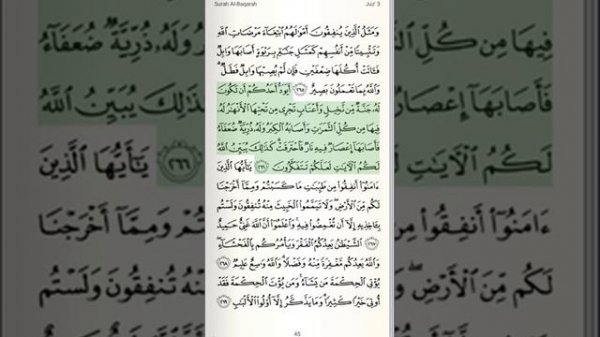 Surah Al-Baqarah
Juz' 3
وَمَثَلُ ٱلَّذِينَ يُنفِقُونَ أَمْوَٰلَهُمُ ٱبْتِغَآءَ مَرْضَاتِ ٱللَّهِ
وَتَثْبِيتًا مِّنْ أَنفُسِهِمْ كَمَثَلِ جَنَّةٍۭ بِرَبْوَةٍ أَصَابَهَا وَابِلٌ
فَـَٔاتَتْ أُكُلَهَا ضِعْفَيْنِ فَإِن لَّمْ يُصِبْهَا وَابِلٌ فَطَلٌّ
وَٱللَّهُ بِمَا تَعْمَلُونَ بَصِيرٌ ٢٦٥ أَيَوَدُّ أَحَدُكُمْ أَن تَكُونَ
لَهُۥ جَنَّةٌ مِّن نَّخِيلٍ وَأَعْنَابٍ تَجْرِى مِن تَحْتِهَا ٱلْأَنْهَٰرُ لَهُۥ
فِيهَا مِن كُلِّ ٱلثَّمَرَٰتِ وَأَصَابَهُ ٱلْكِبَرُ وَلَهُۥ ذُرِّيَّةٌ ضُعَفَآءُ
فَأَصَابَهَآ إِعْصَارٌ فِيهِ نَارٌ فَٱحْتَرَقَتْ كَذَٰلِكَ يُبَيِّنُ ٱللَّهُ
لَكُمُ ٱلْـَٔايَٰتِ لَعَلَّكُمْ تَتَفَكَّرُونَ ٢٦٦ يَٰٓأَيُّهَا ٱلَّذِينَ
ءَامَنُوٓا۟ أَنفِقُوا۟ مِن طَيِّبَٰتِ مَا كَسَبْتُمْ وَمِمَّآ أَخْرَجْنَا
لَكُم مِّنَ ٱلْأَرْضِ وَلَا تَيَمَّمُوا۟ ٱلْخَبِيثَ مِنْهُ تُنفِقُونَ وَلَسْتُم
بِـَٔاخِذِيهِ إِلَّآ أَن تُغْمِضُوا۟ فِيهِ وَٱعْلَمُوٓا۟ أَنَّ ٱللَّهَ غَنِىٌّ حَمِيدٌ
٢٦٧ ٱلشَّيْطَٰنُ يَعِدُكُمُ ٱلْفَقْرَ وَيَأْمُرُكُم بِٱلْفَحْشَآءِ
وَٱللَّهُ يَعِدُكُم مَّغْفِرَةً مِّنْهُ وَفَضْلًا وَٱللَّهُ وَٰسِعٌ عَلِيمٌ ٢٦٨
يُؤْتِى ٱلْحِكْمَةَ مَن يَشَآءُ وَمَن يُؤْتَ ٱلْحِكْمَةَ فَقَدْ
أُوتِىَ خَيْرًا كَثِيرًا وَمَا يَذَّكَّرُ إِلَّآ أُو۟لُوا۟ ٱلْأَلْبَٰبِ ٢٦٩
45
فِيهَا مِن كُلِّ
فَأَصَابَهَآ إِعْصَارٌ
لَكُمُ ٱلْـَٔايَٰتِ
ءَامَنُوٓا۟ أَنفِقُوا۟ مِن
لَكُم مِّنَ ٱلْأَرْضِ
وَلَهُۥ ذُرِّيَّةٌ ضُعَفَآءُ
ذَٰلِكَ يُبَيِّنُ ٱللَّهُ
٢٦٦ يَٰٓأَيُّهَا ٱلَّذِينَ
وَمِمَّآ أَخْرَجْنَا
تُنفِقُونَ وَلَسْتُم